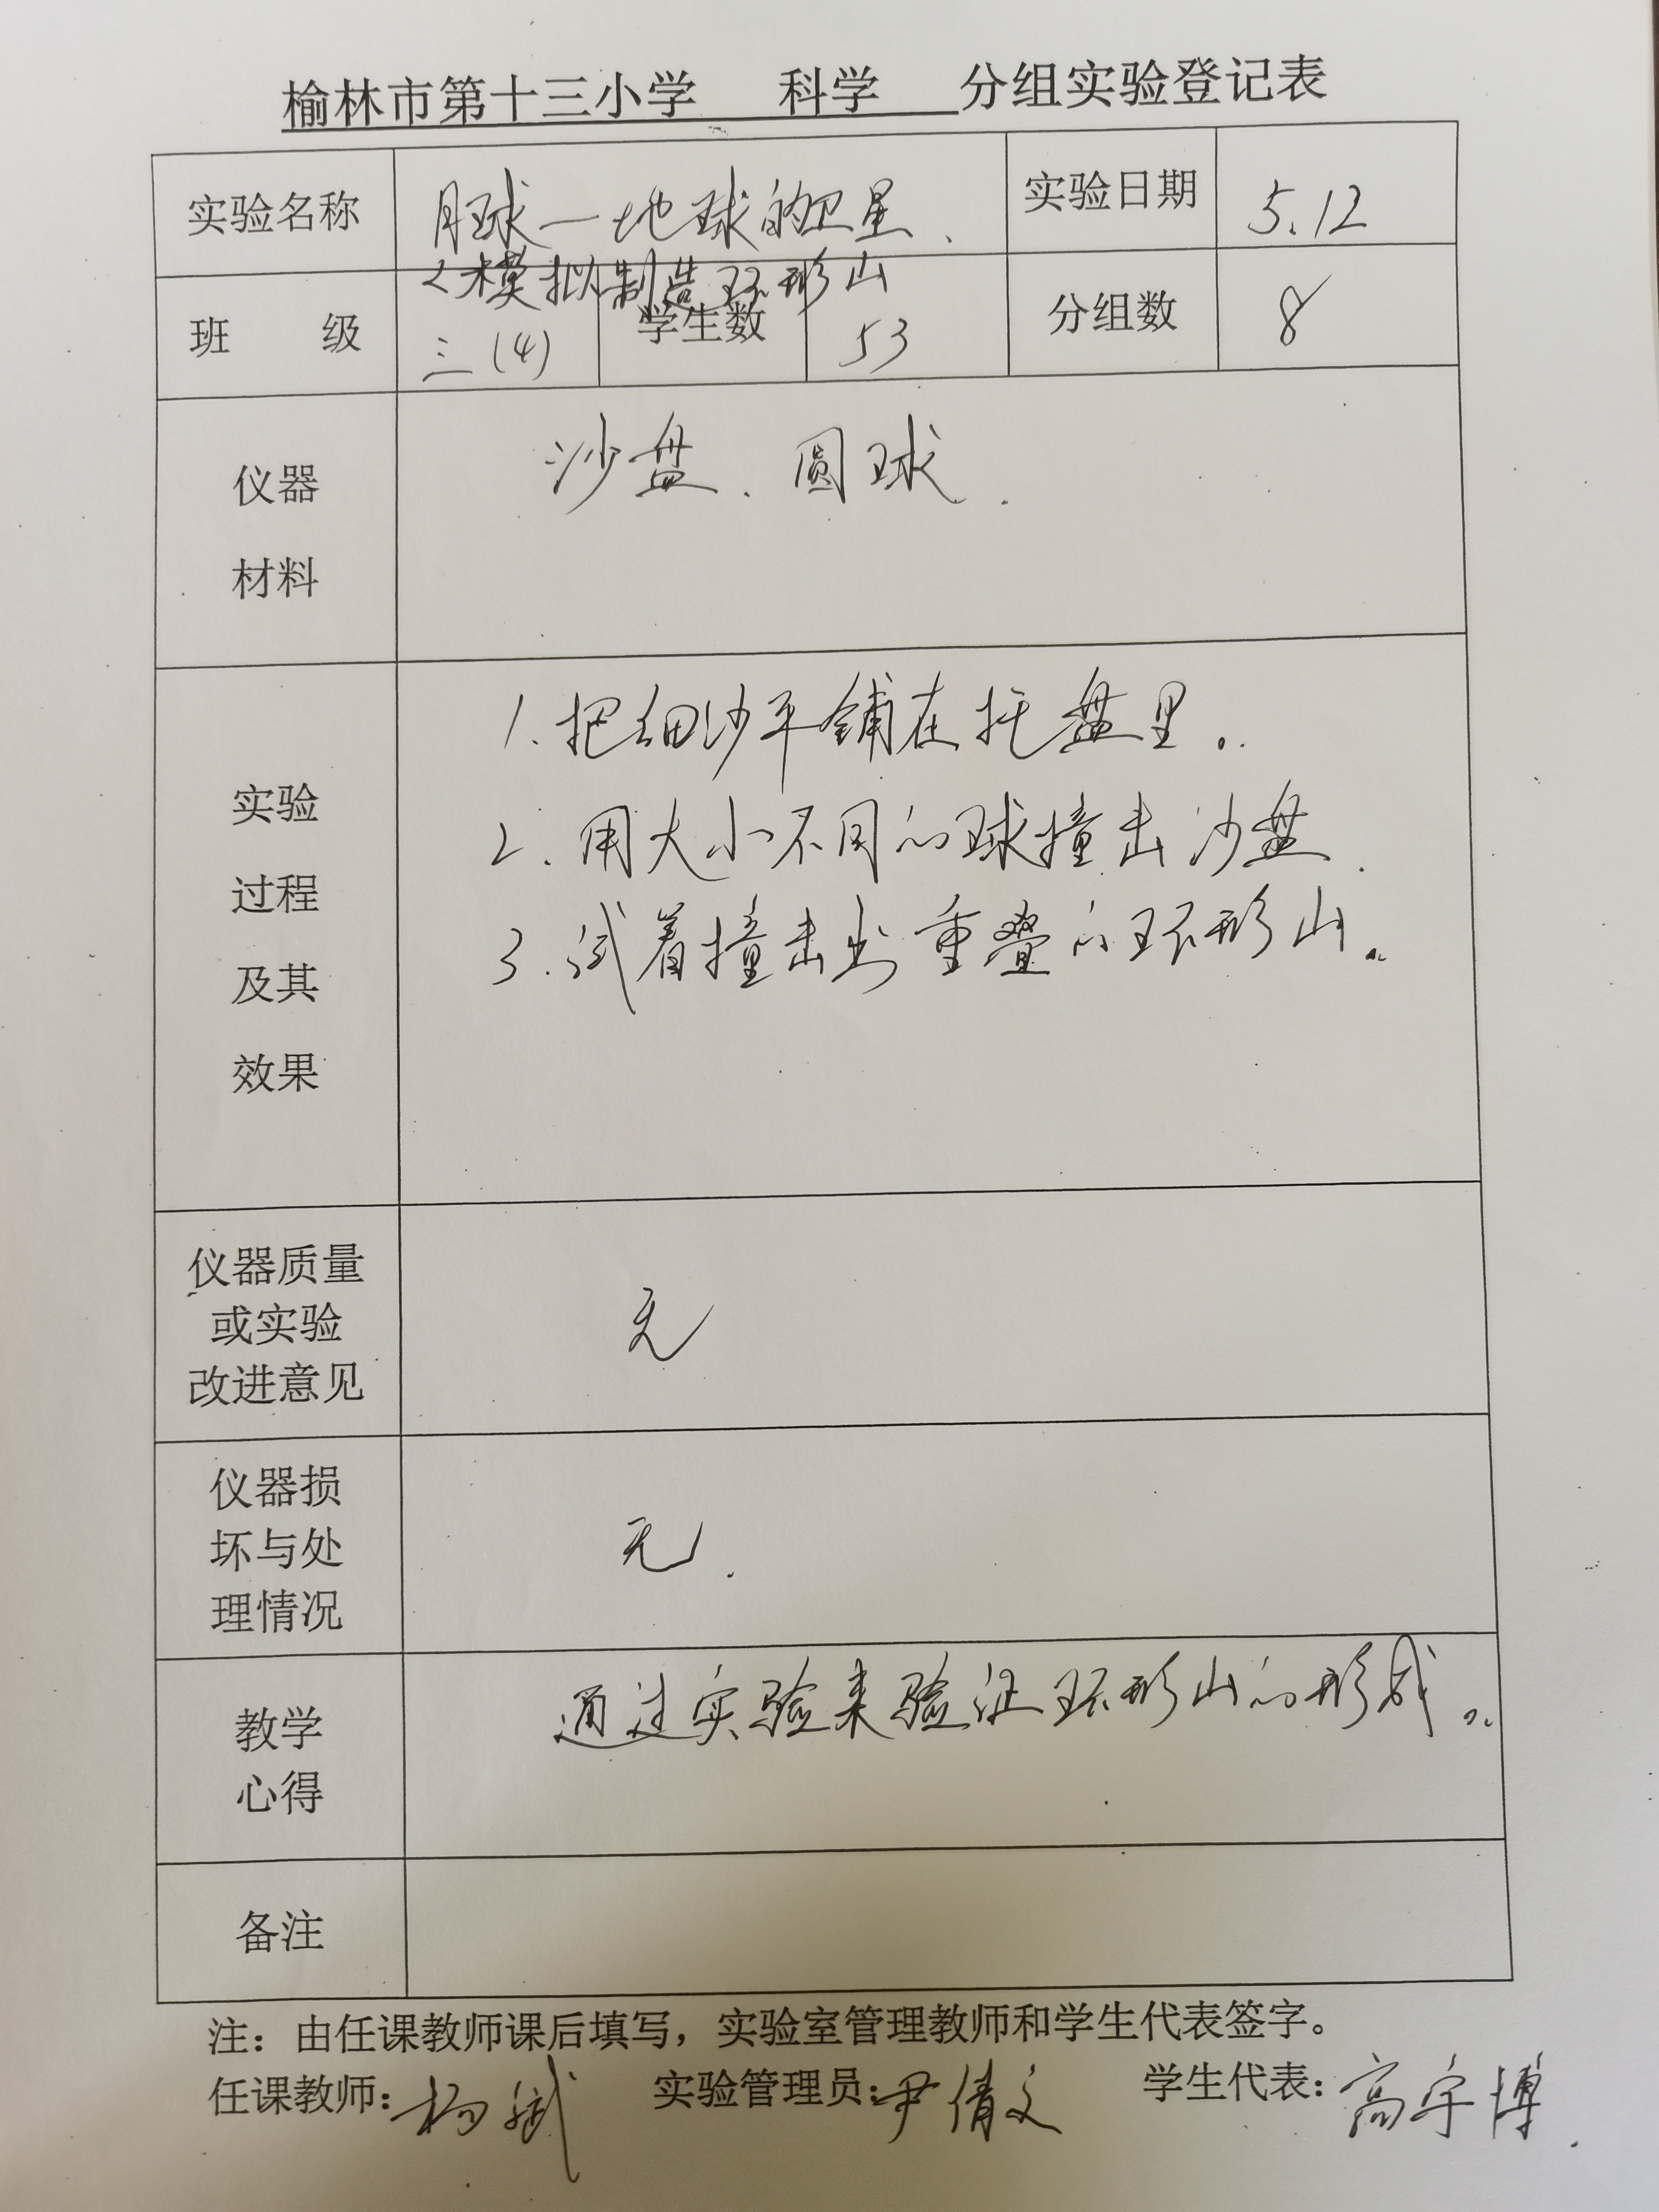 榆林市第十三小学 科学 分组实验登记表
实验名称 月球—地球的卫星、 实验日期 5.12
<模拟制造环形山
班 级 三(4) 学生数 53 分组数 8
仪器 沙盘、圆球.
材料
1.把细沙平铺在托盘里。
实验 2.用大小不同的球撞击沙盘.
过程 3.试着撞击出重叠的环形山。
及其
效果
仪器质量
或实验 无
改进意见
仪器损
坏与处 无.
理情况
教学 通过实验来验证环形山的形成。
心得
备注
注：由任课教师课后填写，实验室管理教师和学生代表签字。
任课教师:杨斌 实验管理员:尹倩文 学生代表:高宇博.